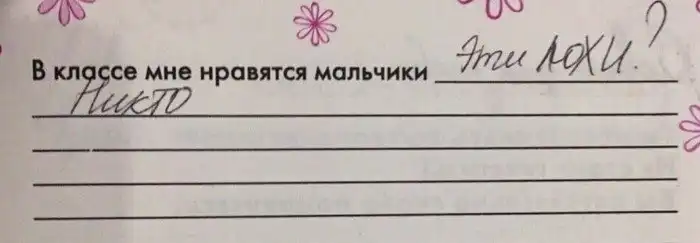 В классе мне нравятся мальчики Эти лохи?
Никто